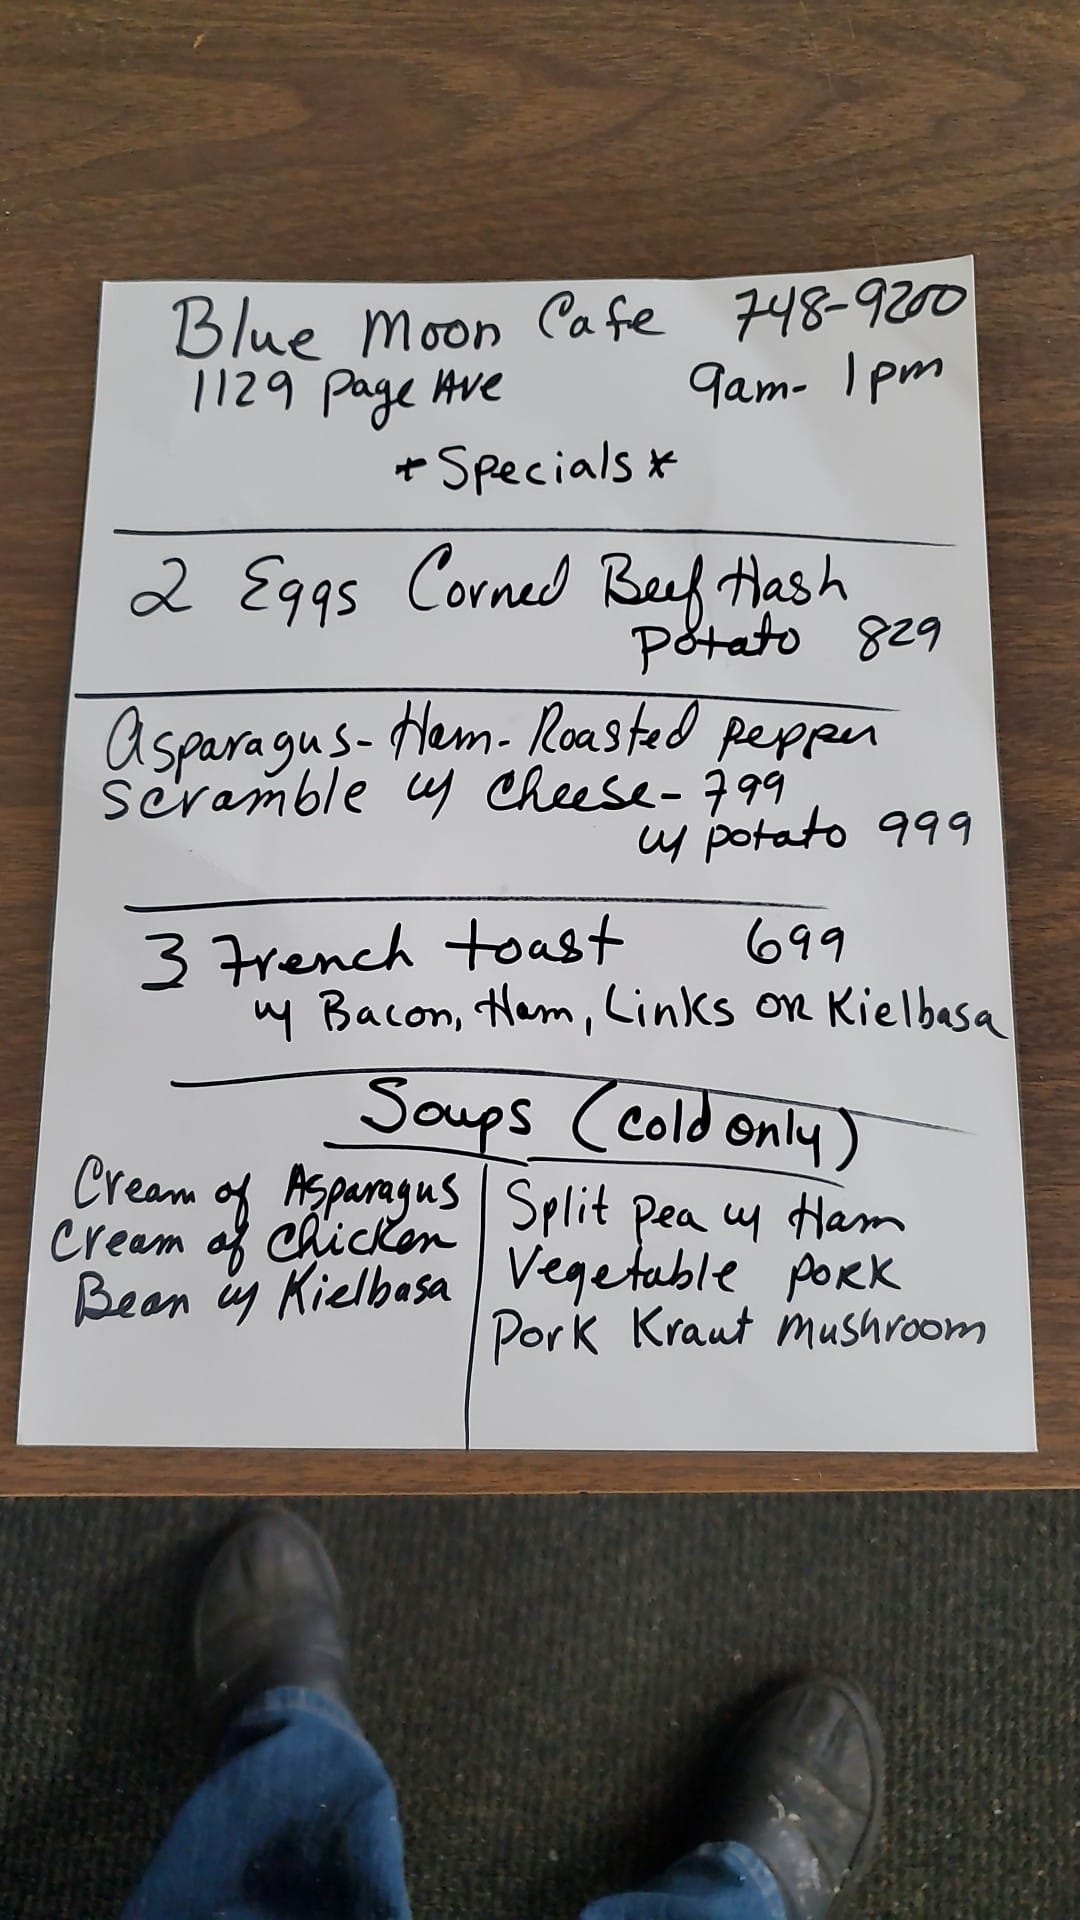 Blue Moon Cafe 748-9200
1129 Page Ave 9am- 1pm
*Specials*
2 Eggs Corned Beef Hash
Potato 829
Asparagus- Ham- Roasted Pepper
Scramble w/ Cheese- 799
w/ potato 999
3 French toast 699
w/ Bacon, Ham, Links OR Kielbasa
Soups (cold only)
Cream of Asparagus
Cream of Chicken
Bean w/ Kielbasa
Split Pea w/ Ham
Vegetable PORK
Pork Kraut Mushroom